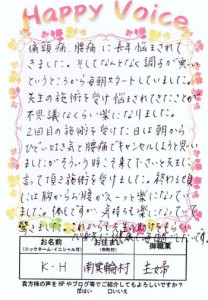 Happy Voice
偏頭痛、腰痛に長年悩まされて
きました。そしてなんとなく調子が悪い
というところから毎朝スタートしていました。
先生の施術を受け悩まされてきたことが
不思議なくらい楽になりました。
2回目の施術を受けた日は朝から
ひどい吐き気と腰痛でキャンセルしようと思い
ましたが そういう時こそ来て下さいと先生に
言って頂き施術を受けました。終わる頃
には胸からお腹がスーッと楽になってい
ました。体もですが、気持ちも楽になって
お名前
(ニックネーム・イニシャル可)
お住まい
(市町村)
御職業
K・H
南箕輪村
主婦
貴方様の声をHPやブログ等でご紹介してもよろしいですか?
はい 口いいえ